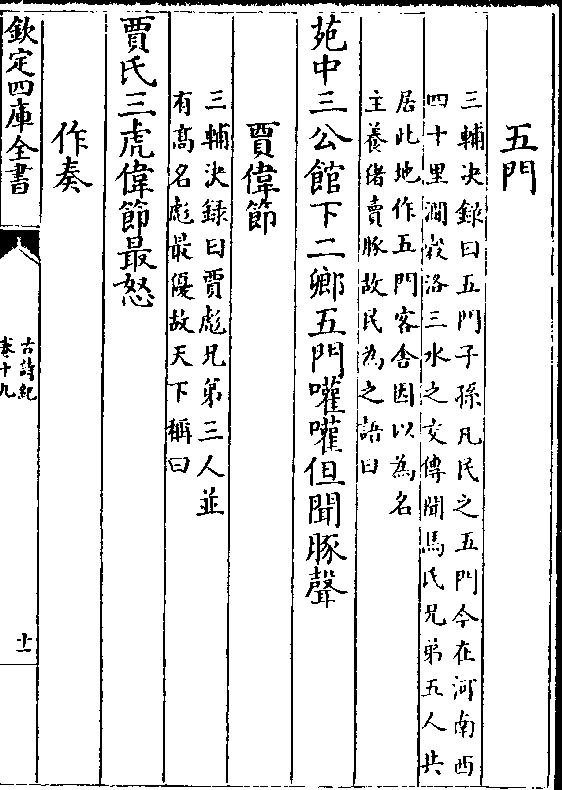 五門
三輔决録曰五門子孫凡民之五門今在河南西
四十里澗穀洛三水之交傳聞馬氏兄弟五人共
居此地作五門客舍因以為名
主養猪賣豚故民為之語曰
苑中三公館下二鄉五門嚾嚾但聞豚聲
賈偉節
三輔决録曰賈彪兄弟三人並
有高名彪最優故天下稱曰
賈氏三虎偉節最怒
作奏
欽定四庫全書
古詩紀
卷十九
十一